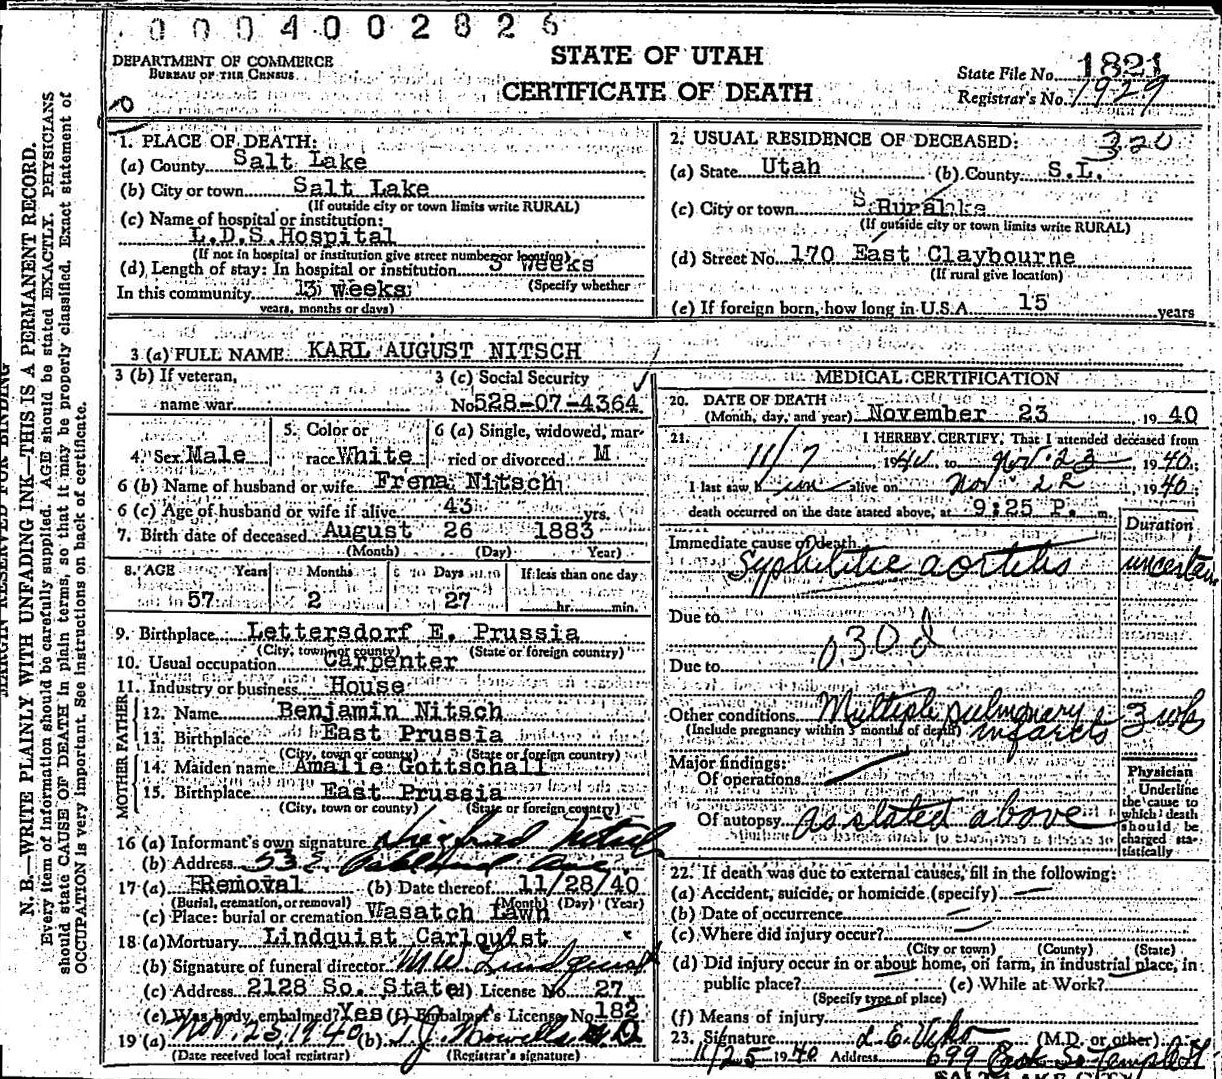 0004002826
STATE OF UTAH
CERTIFICATE OF DEATH
DEPARTMENT OF COMMERCE
BUREAU OF THE CENSUS
State File No. 1821
Registrar's No. 1929
MARGIN RESERVED FOR BINDING
N. B.—WRITE PLAINLY WITH UNFADING INK—THIS IS A PERMANENT RECORD.
Every item of information should be carefully supplied. AGE should be stated EXACTLY. PHYSICIANS
should state CAUSE OF DEATH in plain terms, so that it may be properly classified. Exact statement of
OCCUPATION is very important. See instructions on back of certificate.
1. PLACE OF DEATH:
(a) County Salt Lake
(b) City or town Salt Lake
(If outside city or town limits write RURAL)
(c) Name of hospital or institution:
L.D.S. Hospital
(If not in hospital or institution give street number or location)
(d) Length of stay: In hospital or institution 3 weeks
(Specify whether
In this community 13 weeks
years, months or days)
2. USUAL RESIDENCE OF DECEASED: 320
(a) State Utah (b) County S.L.
(c) City or town Rural
(If outside city or town limits write RURAL)
(d) Street No. 170 East Claybourne
(If rural give location)
(e) If foreign born, how long in U.S.A. 15 years
3 (a) FULL NAME KARL AUGUST NITSCH
3 (b) If veteran,
name war
3 (c) Social Security
No. 528-07-4364
4. Sex Male
5. Color or
race White
6 (a) Single, widowed, mar-
ried or divorced M
6 (b) Name of husband or wife Frena Nitsch
6 (c) Age of husband or wife if alive 43 yrs.
7. Birth date of deceased August 26 1883
(Month) (Day) Year)
8. AGE Years Months Days If less than one day
57 2 27 hr. min.
9. Birthplace Lettersdorf E. Prussia
(City, town or county) (State or foreign country)
10. Usual occupation Carpenter
11. Industry or business House
FATHER
12. Name Benjamin Nitsch
13. Birthplace East Prussia
(City, town or county) (State or foreign country)
MOTHER
14. Maiden name Amalie Gottschall
15. Birthplace East Prussia
(City, town or county) (State or foreign country)
16 (a) Informant's own signature Siegfried Nitsch
(b) Address 535 Ave
17 (a) Removal (b) Date thereof 11/28/40
(Burial, cremation, or removal) (Month) (Day) (Year)
(c) Place: burial or cremation Wasatch Lawn
18 (a) Mortuary Lindquist Carlquist
(b) Signature of funeral director M W Lindquist
(c) Address 2128 So. State (d) License No. 27
(e) Was body embalmed? Yes (f) Embalmer's License No. 182
19 (a) Nov. 25, 1940 (b) T.J. Howells M.D.
(Date received local registrar) (Registrar's signature)
MEDICAL CERTIFICATION
20. DATE OF DEATH
(Month, day, and year) November 23 1940
21. I HEREBY CERTIFY, That I attended deceased from
11/7 1940, to Nov 23, 1940;
I last saw him alive on Nov 22, 1940;
death occurred on the date stated above, at 9:25 P. m.
Duration
Immediate cause of death
Syphilitic aortitis uncertain
Due to
030d
Due to
Other conditions Multiple pulmonary infarcts 3 wks
(Include pregnancy within 3 months of death)
Major findings:
Of operations
Of autopsy As stated above
Physician
Underline
the cause to
which death
should be
charged sta-
tistically
22. If death was due to external causes, fill in the following:
(a) Accident, suicide, or homicide (specify)
(b) Date of occurrence
(c) Where did injury occur?
(City or town) (County) (State)
(d) Did injury occur in or about home, on farm, in industrial place, in
public place? (e) While at Work?
(Specify type of place)
(f) Means of injury
23. Signature L. E. Viko (M.D. or other)
11/25 1940 Address 699 East So Temple St
SALT LAKE CITY